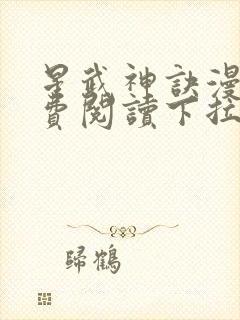 星武神訣漫
費閱讀下拉
歸鶴